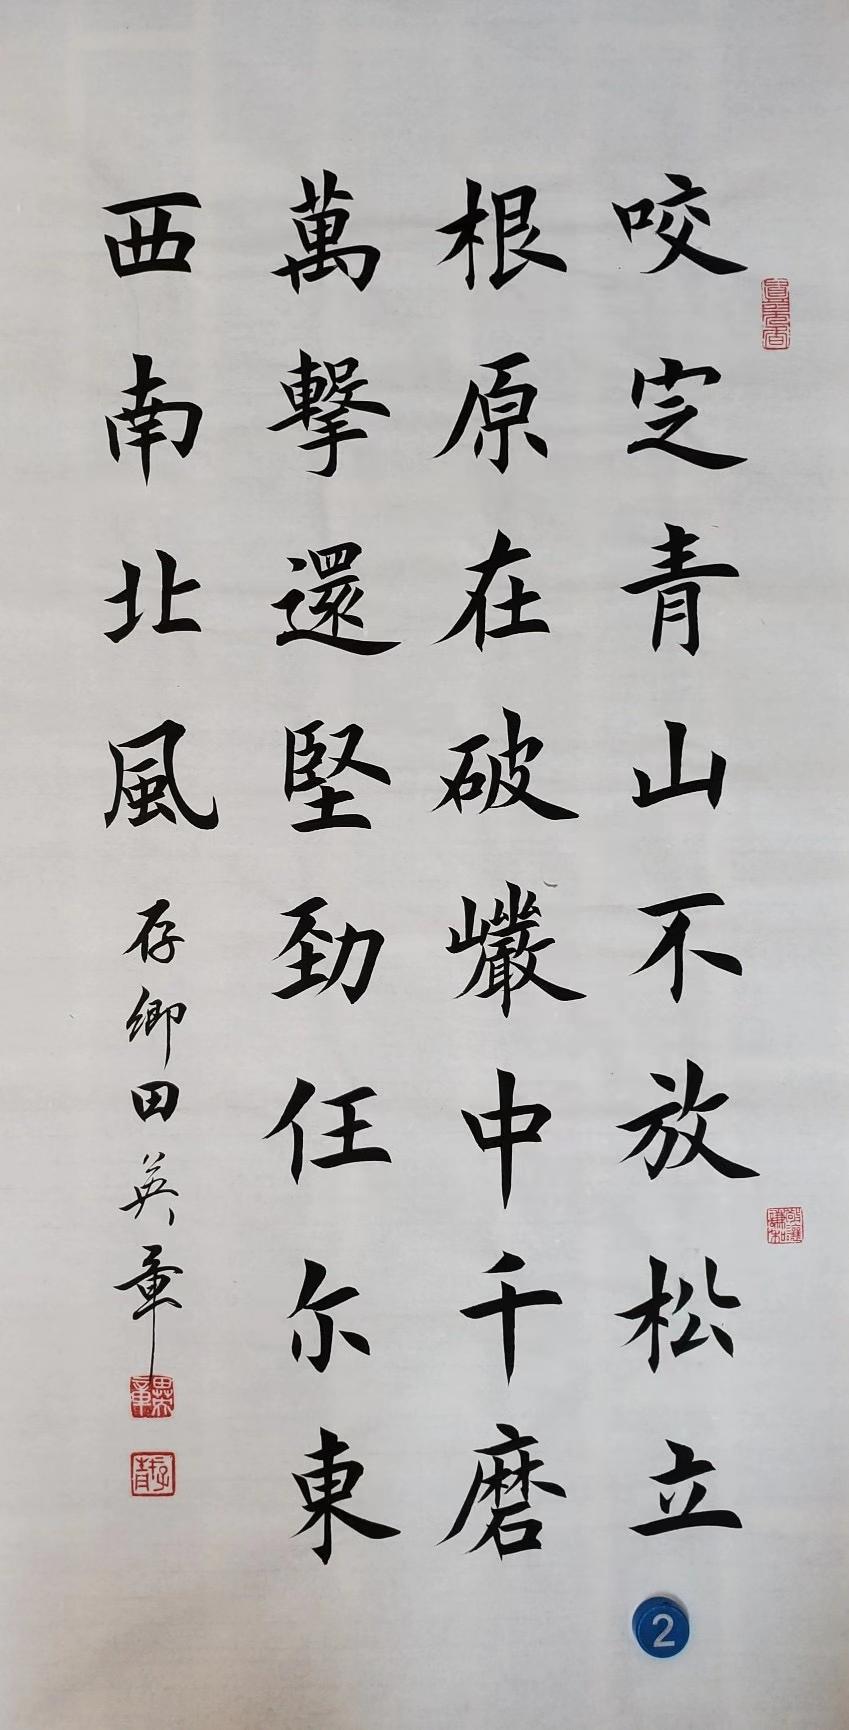 咬定青山不放松立
根原在破巖中千磨
萬擊還堅劲任尔東
西南北風
存卿田英章
2